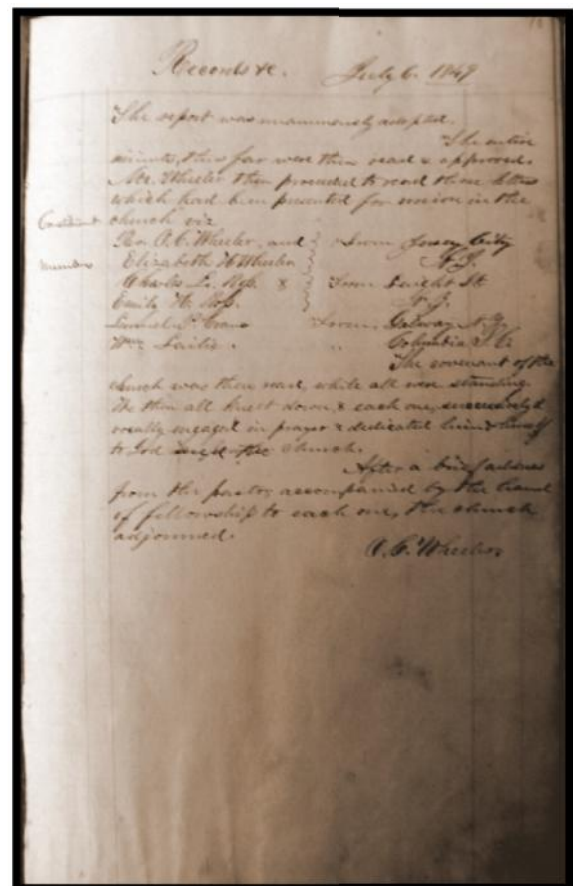 Records &c. July 6. 1849
The report was unanimously adopted.
The entire
minutes, thus far were then read & approved.
Mr. Wheeler then proceeded to read those letters
which had been presented for union in the
church viz
Constituent
Members
Rev O. C. Wheeler, and } From Jersey City
Elizabeth H Wheeler } N. J.
Charles L. Ross & } From Dwight St
Emily H. Ross. } N. J.
Lemuel P. Crane From Galway N. Y.
Wm. " Columbia S. C.
The covenant of the
church was then read, while all were standing.
We then all knelt down, & each one, successively &
vocally engaged in prayer & dedicated himself
to God church.
After a brief address
from the pastor, accompanied by the hand
of fellowship to each one, the church
adjourned.
O. C. Wheeler